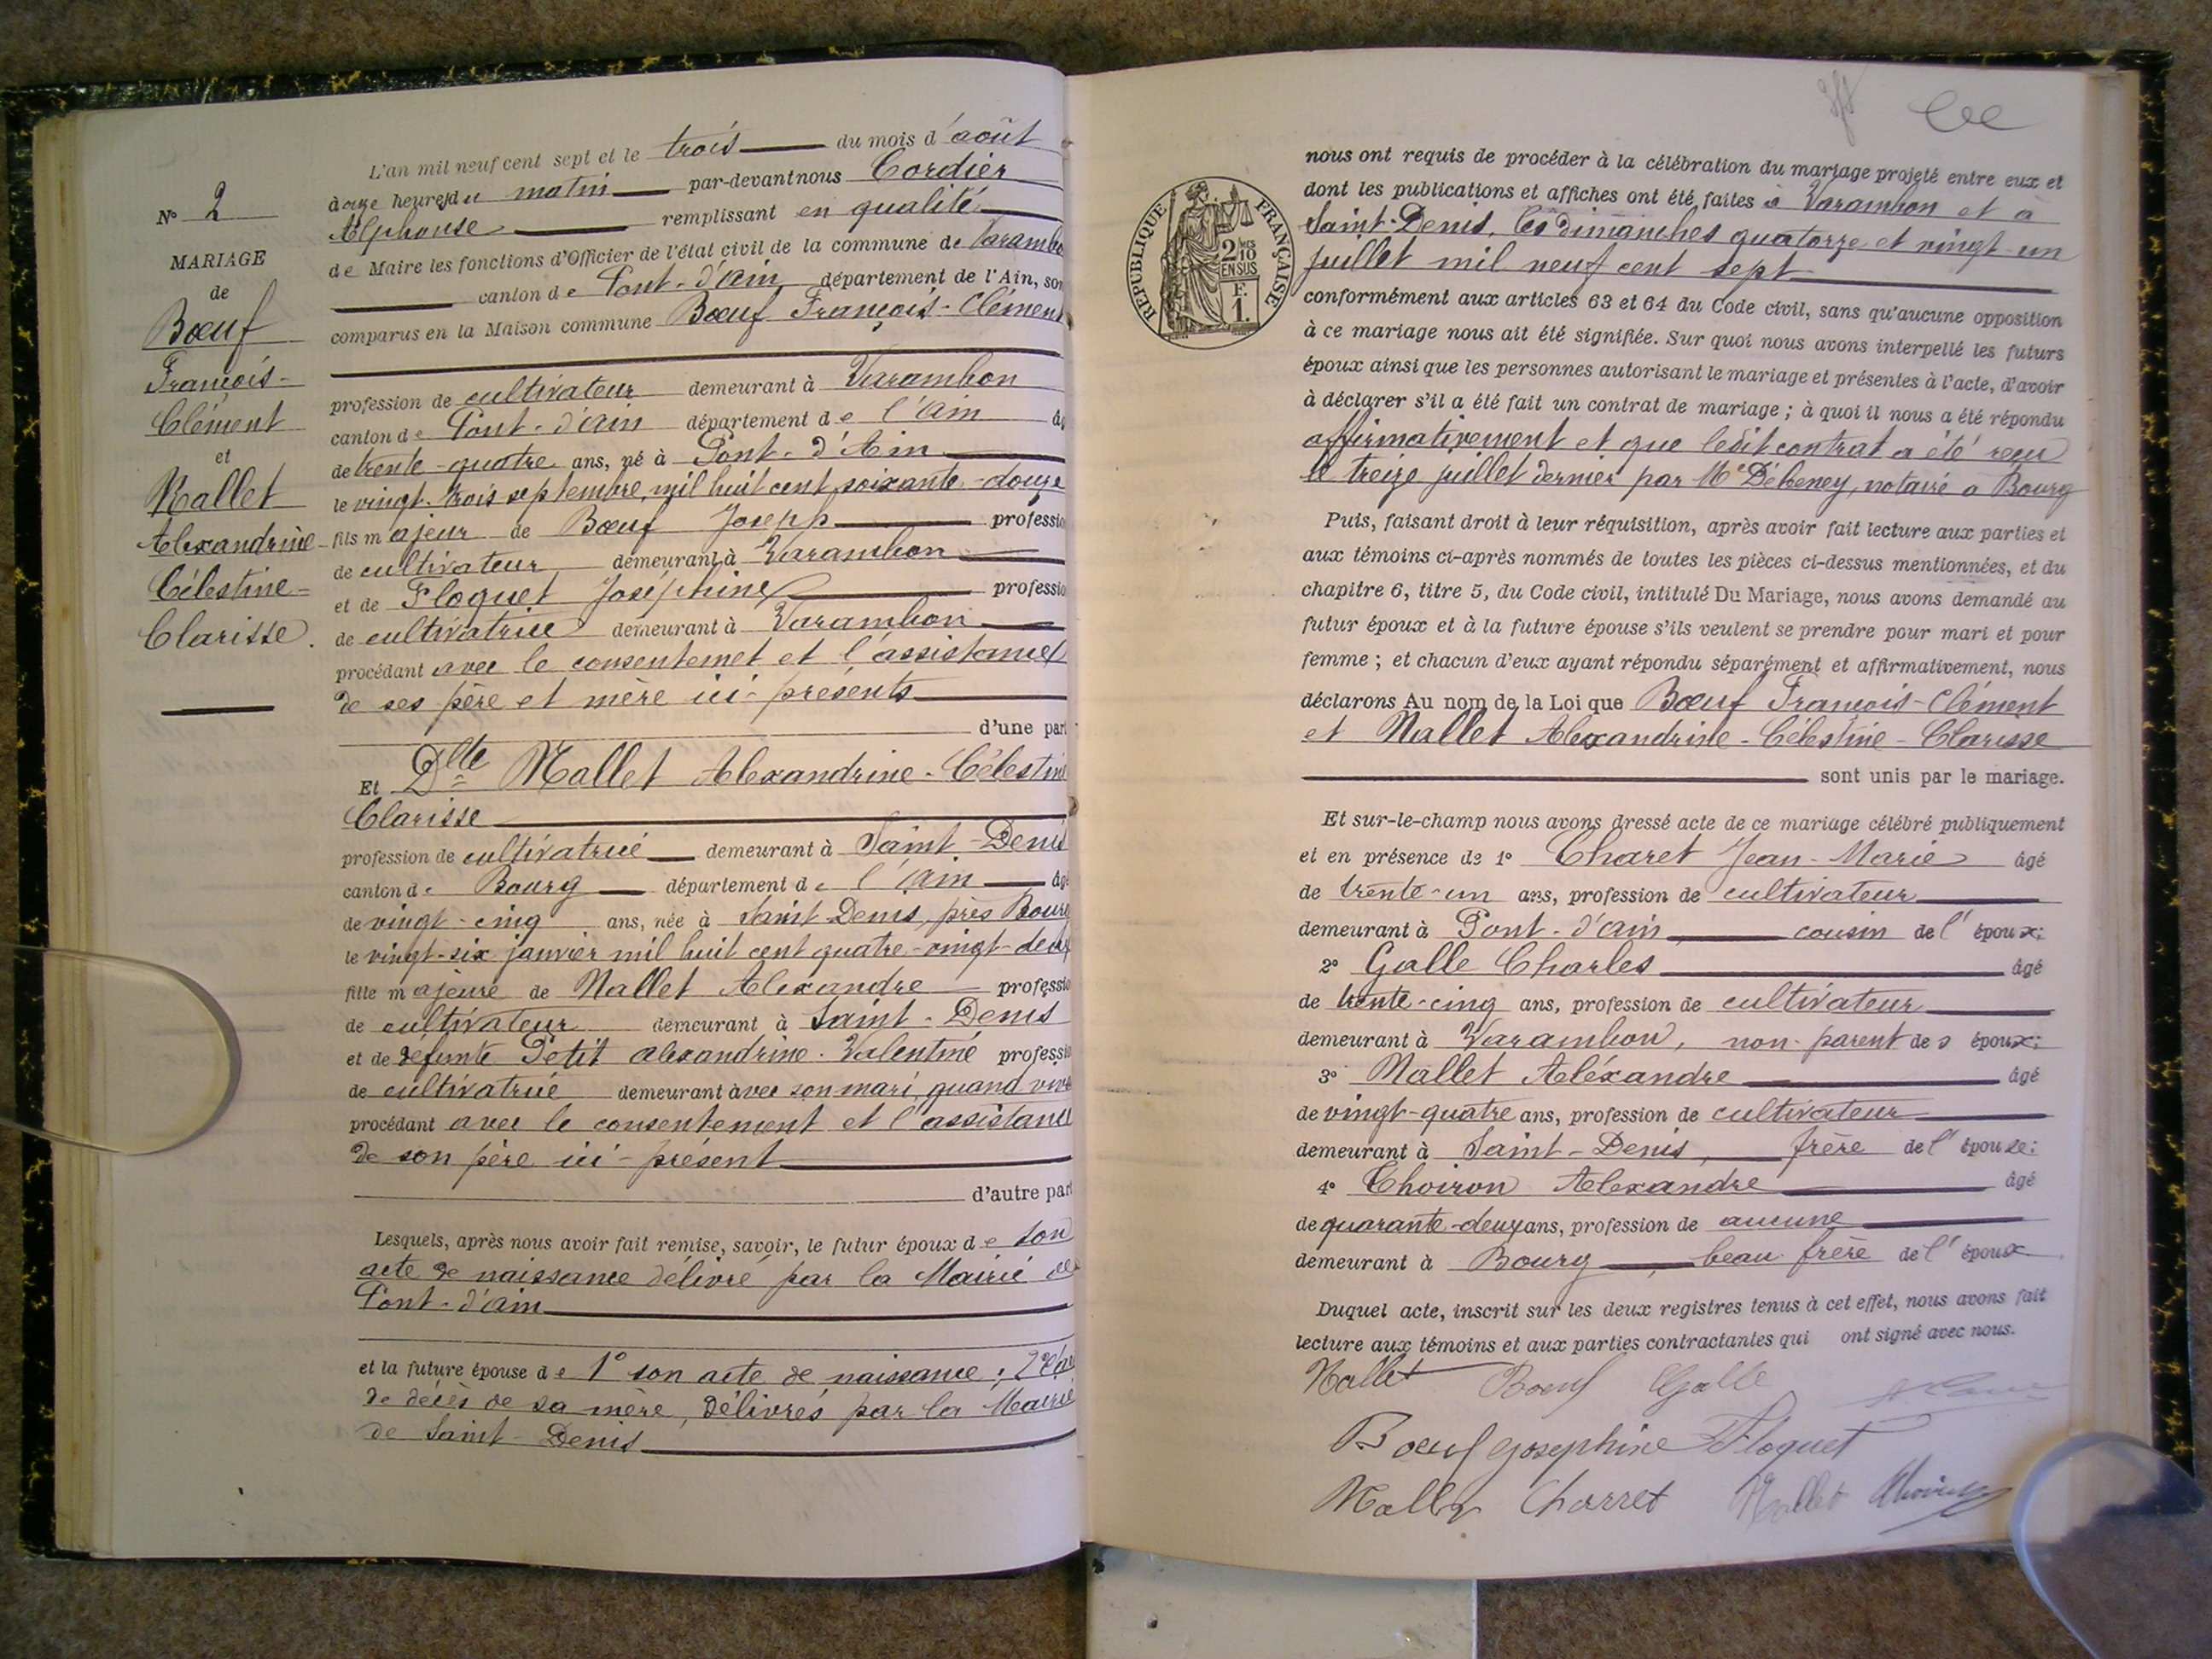 N° 2
MARIAGE
de
Bœuf
François-
Clément
et
Mallet
Alexandrine-
Célestine-
Clarisse.
L'an mil neuf cent sept et le trois du mois d'août
à onze heures du matin par-devant nous Cordier
Alphonse remplissant en qualité
de Maire les fonctions d'Officier de l'état civil de la commune de Varambo
canton de Pont-d'Ain département de l'Ain, son
comparus en la Maison commune Bœuf François-Clément
profession de cultivateur demeurant à Varambon
canton de Pont-d'Ain département de l'Ain âg
de trente-quatre ans, né à Pont-d'Ain
le vingt-trois septembre mil huit cent soixante-douze
fils majeur de Bœuf Joseph professio
de cultivateur demeurant à Varambon
et de Floquet Joséphine professio
de cultivatrice demeurant à Varambon
procédant avec le consentemet et l'assistance
de ses père et mère ici-présents
d'une part
Et Dlle Mallet Alexandrine-Célestine
Clarisse
profession de cultivatrice demeurant à Saint-Denis
canton de Bourg département de l'Ain âgé
de vingt-cinq ans, née à Saint-Denis, près Bourg
le vingt-six janvier mil huit cent quatre-vingt-deux
fille majeure de Mallet Alexandre professio
de cultivateur demeurant à Saint-Denis
et de défunte Petit Alexandrine-Valentine professio
de cultivatrice demeurant avec son mari, quand viva
procédant avec le consentement et l'assistance
de son père ici-présent
d'autre part
Lesquels, après nous avoir fait remise, savoir, le futur époux de son
acte de naissance délivré par la Mairie de
Pont-d'Ain
et la future épouse de 1° son acte de naissance; 2°
de décès de sa mère, délivrés par la Mairie
de Saint-Denis
RÉPUBLIQUE FRANÇAISE
2/10 EN SUS
F. 1.
nous ont requis de procéder à la célébration du mariage projeté entre eux et
dont les publications et affiches ont été faites à Varambon et à
Saint-Denis, les dimanches quatorze et vingt-un
juillet mil neuf cent sept
conformément aux articles 63 et 64 du Code civil, sans qu'aucune opposition
à ce mariage nous ait été signifiée. Sur quoi nous avons interpellé les futurs
époux ainsi que les personnes autorisant le mariage et présentes à l'acte, d'avoir
à déclarer s'il a été fait un contrat de mariage; à quoi il nous a été répondu
affirmativement et que ledit contrat a été reçu
le treize juillet dernier par Me Débeney, notaire à Bourg
Puis, faisant droit à leur réquisition, après avoir fait lecture aux parties et
aux témoins ci-après nommés de toutes les pièces ci-dessus mentionnées, et du
chapitre 6, titre 5, du Code civil, intitulé Du Mariage, nous avons demandé au
futur époux et à la future épouse s'ils veulent se prendre pour mari et pour
femme; et chacun d'eux ayant répondu séparément et affirmativement, nous
déclarons Au nom de la Loi que Bœuf François-Clément
et Mallet Alexandrine-Célestine-Clarisse
sont unis par le mariage.
Et sur-le-champ nous avons dressé acte de ce mariage célébré publiquement
et en présence de 1° Charet Jean-Marie âgé
de trente-un ans, profession de cultivateur
demeurant à Pont-d'Ain, cousin de l'époux;
2° Galle Charles âgé
de trente-cinq ans, profession de cultivateur
demeurant à Varambon, non-parent des époux;
3° Mallet Aléxandre âgé
de vingt-quatre ans, profession de cultivateur
demeurant à Saint-Denis, frère de l'épouse;
4° Choiron Alexandre âgé
de quarante-deux ans, profession de aucune
demeurant à Bourg, beau-frère de l'époux
Duquel acte, inscrit sur les deux registres tenus à cet effet, nous avons fait
lecture aux témoins et aux parties contractantes qui ont signé avec nous.
Mallet Bœuf Galle
Boeuf Josephine Floquet
Charret Mallet Choiron